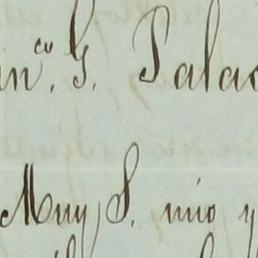 in.co G. Palac
Muy S. mio y